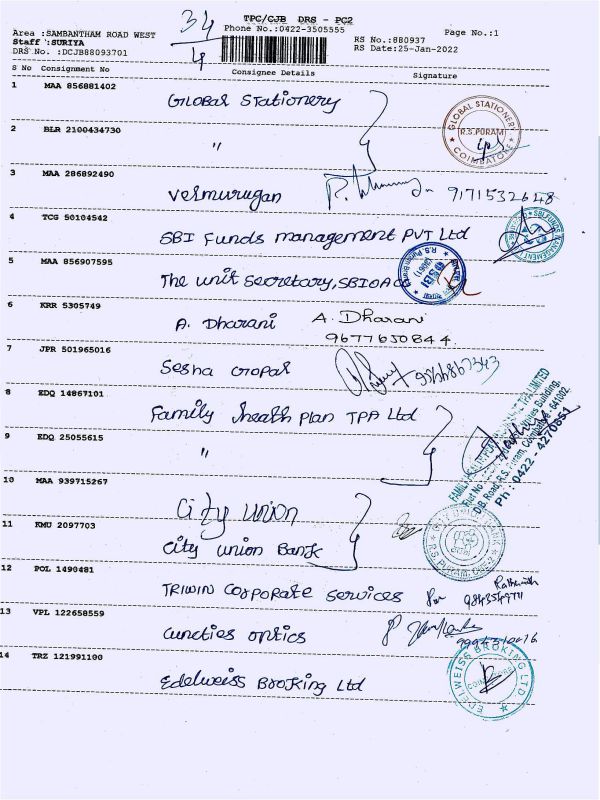 34
4
TPC/CJB DRS - PC2
Area :SAMBANTHAM ROAD WEST
Phone No.:0422-3505555
Page No.:1
Staff :SURIYA
RS No.:880937
DRS No. :DCJB88093701
RS Date:25-Jan-2022
S No Consignment No Consignee Details Signature
1 MAA 856881402
Global Stationery
GLOBAL STATIONER
R.S.PURAM
COIMBATORE
2 BLR 2100434730
"
3 MAA 286892490
Velmurugan 9171532648
4 TCG 50104542
SBI Funds management PVT Ltd
5 MAA 856907595
The unit secretary, SBIOA
SBI
6 KRR 5305749
A. Dharani A. Dharani
9677650844.
7 JPR 501965016
Sesha Gopal
8 EDQ 14867101
Family health plan TPA Ltd
D.B. Road, R.S. Puram, Coimbatore - 641002.
Ph : 0422 - 4270851
9 EDQ 25055615
"
10 MAA 939715267
City union
11 KMU 2097703
City union Bank
R.S. PURAM, CBE-2
12 POL 1490481
TRIWIN Corporate services For
13 VPL 122658559
optics
14 TRZ 121991100
Edelweiss Broking Ltd
EDELWEISS BROKING LTD